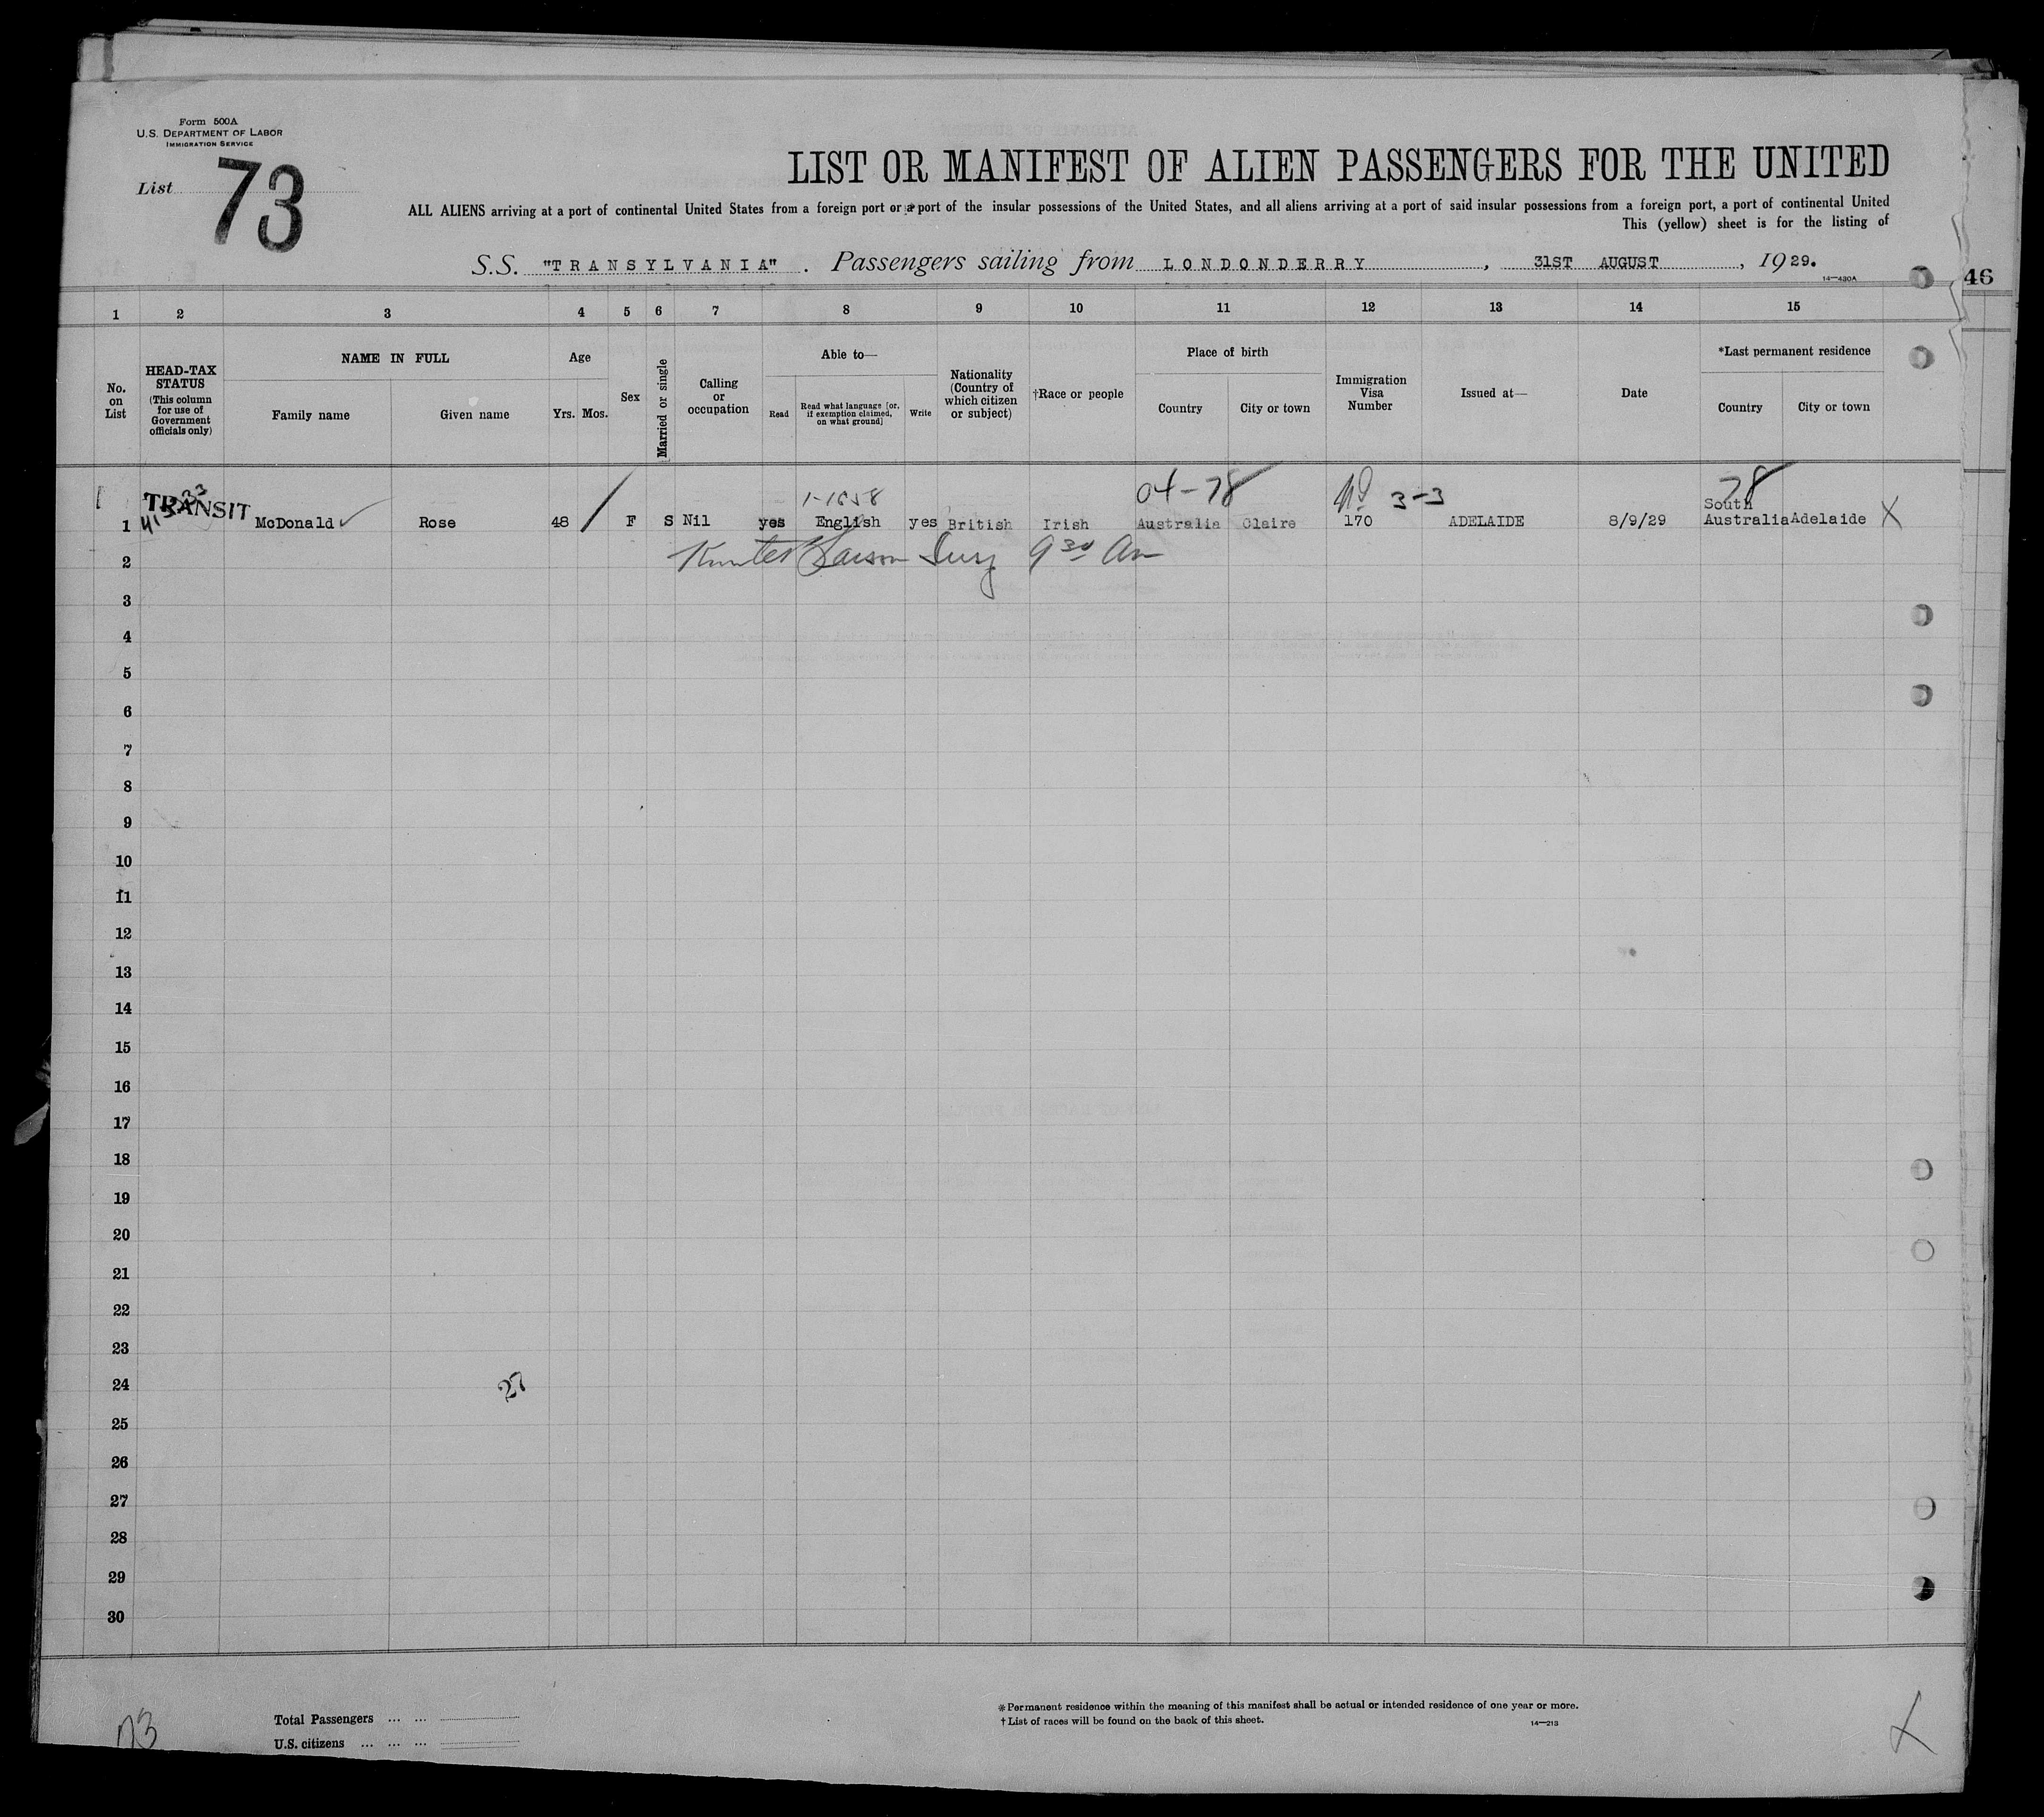 Form 500A
U.S. DEPARTMENT OF LABOR
IMMIGRATION SERVICE
List 73
LIST OR MANIFEST OF ALIEN PASSENGERS FOR THE UNITED
ALL ALIENS arriving at a port of continental United States from a foreign port or a port of the insular possessions of the United States, and all aliens arriving at a port of said insular possessions from a foreign port, a port of continental United
This (yellow) sheet is for the listing of
S.S. "TRANSYLVANIA". Passengers sailing from LONDONDERRY, 31ST AUGUST, 1929.
14—430A
46
1 2 3 4 5 6 7 8 9 10 11 12 13 14 15
No. on List
HEAD-TAX STATUS (This column for use of Government officials only)
NAME IN FULL
Family name Given name
Age
Yrs. Mos.
Sex
Married or single
Calling or occupation
Able to—
Read
Read what language [or, if exemption claimed, on what ground]
Write
Nationality (Country of which citizen or subject)
†Race or people
Place of birth
Country City or town
Immigration Visa Number
Issued at—
Date
*Last permanent residence
Country City or town
04-78 3-3 78
1 TRANSIT McDonald Rose 48 F S Nil yes English yes British Irish Australia Claire 170 ADELAIDE 8/9/29 South Australia Adelaide X
9 30 Am
2
3
4
5
6
7
8
9
10
11
12
13
14
15
16
17
18
19
20
21
22
23
24
27
25
26
27
28
29
30
Total Passengers ... ...
U.S. citizens ... ... ...
*Permanent residence within the meaning of this manifest shall be actual or intended residence of one year or more.
†List of races will be found on the back of this sheet.
14—213
73
X